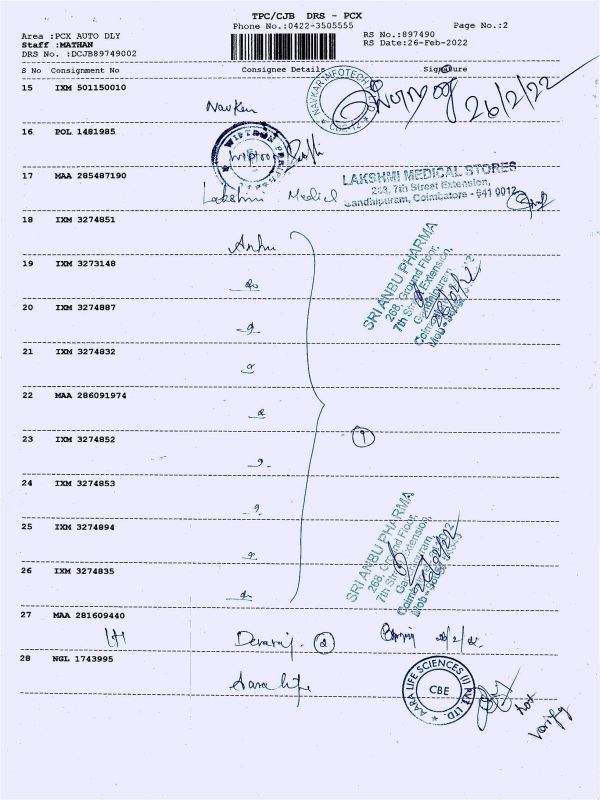 TPC/CJB DRS - PCX
Phone No.:0422-3505555 Page No.:2
Area :PCX AUTO DLY RS No.:897490
Staff :MATHAN RS Date:26-Feb-2022
DRS No. :DCJB89749002
S No Consignment No Consignee Details Signature
15 IXM 501150010
Navkar NAVKAR INFOTECH 26/2/22
16 POL 1481985
17 MAA 285487190
Lakshmi Medical LAKSHMI MEDICAL STORES
268, 7th Street Extension,
Gandhipuram, Coimbatore - 641 0012
18 IXM 3274851
Anbu
SRI ANBU PHARMA
268, Ground Floor,
7th Street Extension,
Gandhipuram
19 IXM 3273148
do
20 IXM 3274887
21 IXM 3274832
22 MAA 286091974
23 IXM 3274852
9
24 IXM 3274853
25 IXM 3274894
SRI ANBU PHARMA
268, Ground Floor,
7th Street Extension,
Gandhipuram,
26 IXM 3274835
do
27 MAA 281609440
Devaraj. 2
28 NGL 1743995
Aara life
AARA LIFE SCIENCES (I) PVT. LTD.
CBE
not
verify